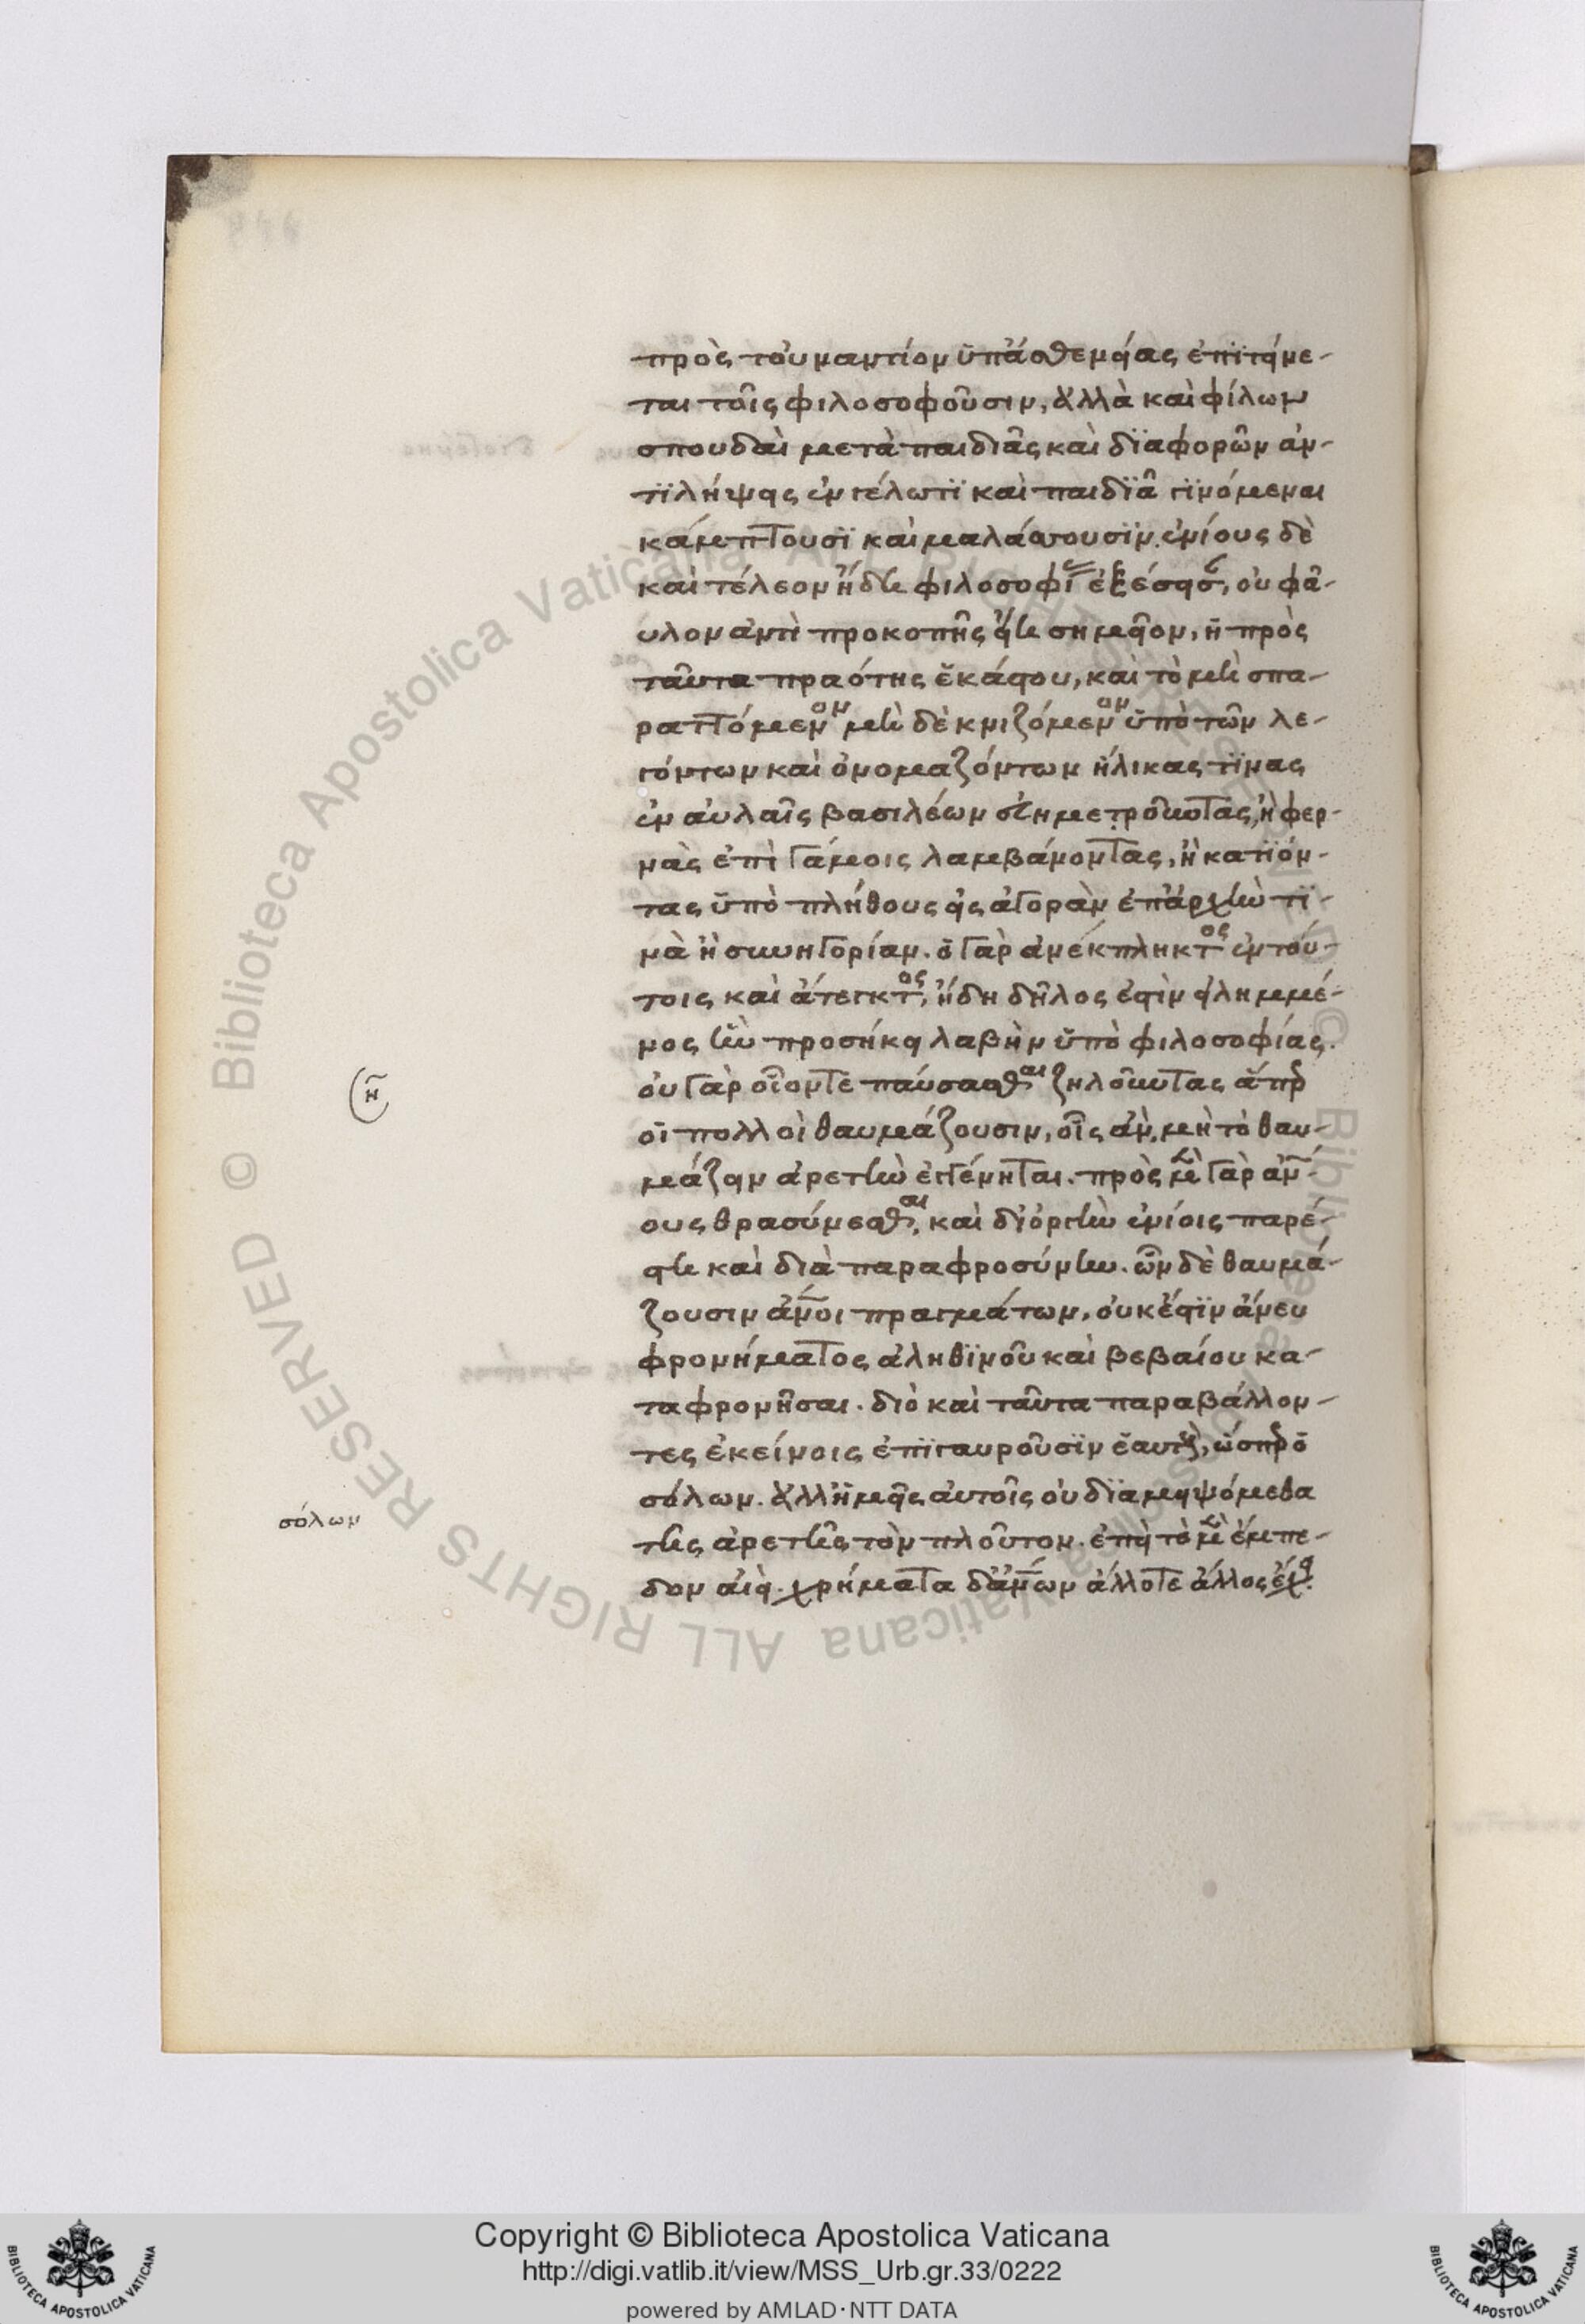 πρὸς τοὐναντίον ὑπ' ἀσθενείας ἐπιγίνε-
ται τοῖς φιλοσοφοῦσιν, ἀλλὰ καὶ φίλων
σπουδαὶ μετὰ παιδιᾶς καὶ διαφορῶν ἀν-
τιλήψεις ἐν γέλωτι καὶ παιδιᾷ γινόμεναι
κάμπτουσι καὶ μαλάσσουσιν. ἐνίους δὲ
καὶ τέλεον ἤδη φιλοσοφίας ἐξέστησαν, οὐ φαῦ-
υλον ἂν εἴη προκοπῆς εἴη σημεῖον, ἡ πρὸς
ταῦτα πραότης ἑκάστου, καὶ τὸ μὴ σπα-
ραττόμενον μὴ δὲ κνιζόμενον ὑπὸ τῶν λε-
γόντων καὶ ὀνομαζόντων ἥλικας τινας
ἐν αὐλαῖς βασιλέων εὐημεροῦντας, ἢ φερ-
νὰς ἐπὶ γάμοις λαμβάνοντας, ἢ κατιόν-
τας ὑπὸ πλήθους εἰς ἀγορὰν ἐπ' ἀρχήν τι-
νὰ ἢ συνηγορίαν. ὁ γὰρ ἀνέκπληκτος ἐν τού-
τοις καὶ ἄτεγκτος, ἤδη δῆλος ἐστὶν εἰλημμέ-
νος ἣν προσήκει λαβὴν ὑπὸ φιλοσοφίας.
οὐ γὰρ οἷόντε παύσασθαι ζηλοῦντας ἅπερ
οἱ πολλοὶ θαυμάζουσιν, οἷς ἂν μὴ τὸ θαυ-
μάζειν ἀρετὴν ἐγγένηται. πρὸς μὲν γὰρ ἀν´-
ους θρασύνεσθαι, καὶ δι' ὀργὴν ἐνίοις παρέ-
στη καὶ διὰ παραφροσύνην. ὧν δὲ θαυμά-
ζουσιν ἄνοι πραγμάτων, οὐκ ἔστιν ἄνευ
φρονήματος ἀληθινοῦ καὶ βεβαίου κα-
ταφρονῆσαι. διὸ καὶ ταῦτα παραβάλλον-
τες ἐκείνοις ἐπιγαυροῦσιν ἑαυτοὺς, ὥσπερ ὁ
σόλων. ἀλλ' ἡμεῖς αὐτοῖς οὐ διαμειψόμεθα
τῆς ἀρετῆς τὸν πλοῦτον. ἐπεὶ τὸ μὲν ἔμπε-
δον αἰεὶ. χρήματα δ' ἄνων ἄλλοτε ἄλλος ἔχει.
ῆ
σόλων
Copyright © Biblioteca Apostolica Vaticana
http://digi.vatlib.it/view/MSS_Urb.gr.33/0222
powered by AMLAD·NTT DATA
© Biblioteca Apostolica Vaticana ALL RIGHTS RESERVED © Biblioteca Apostolica Vaticana ALL RIGHTS RESERVED
BIBLIOTECA APOSTOLICA VATICANA
BIBLIOTECA APOSTOLICA VATICANA